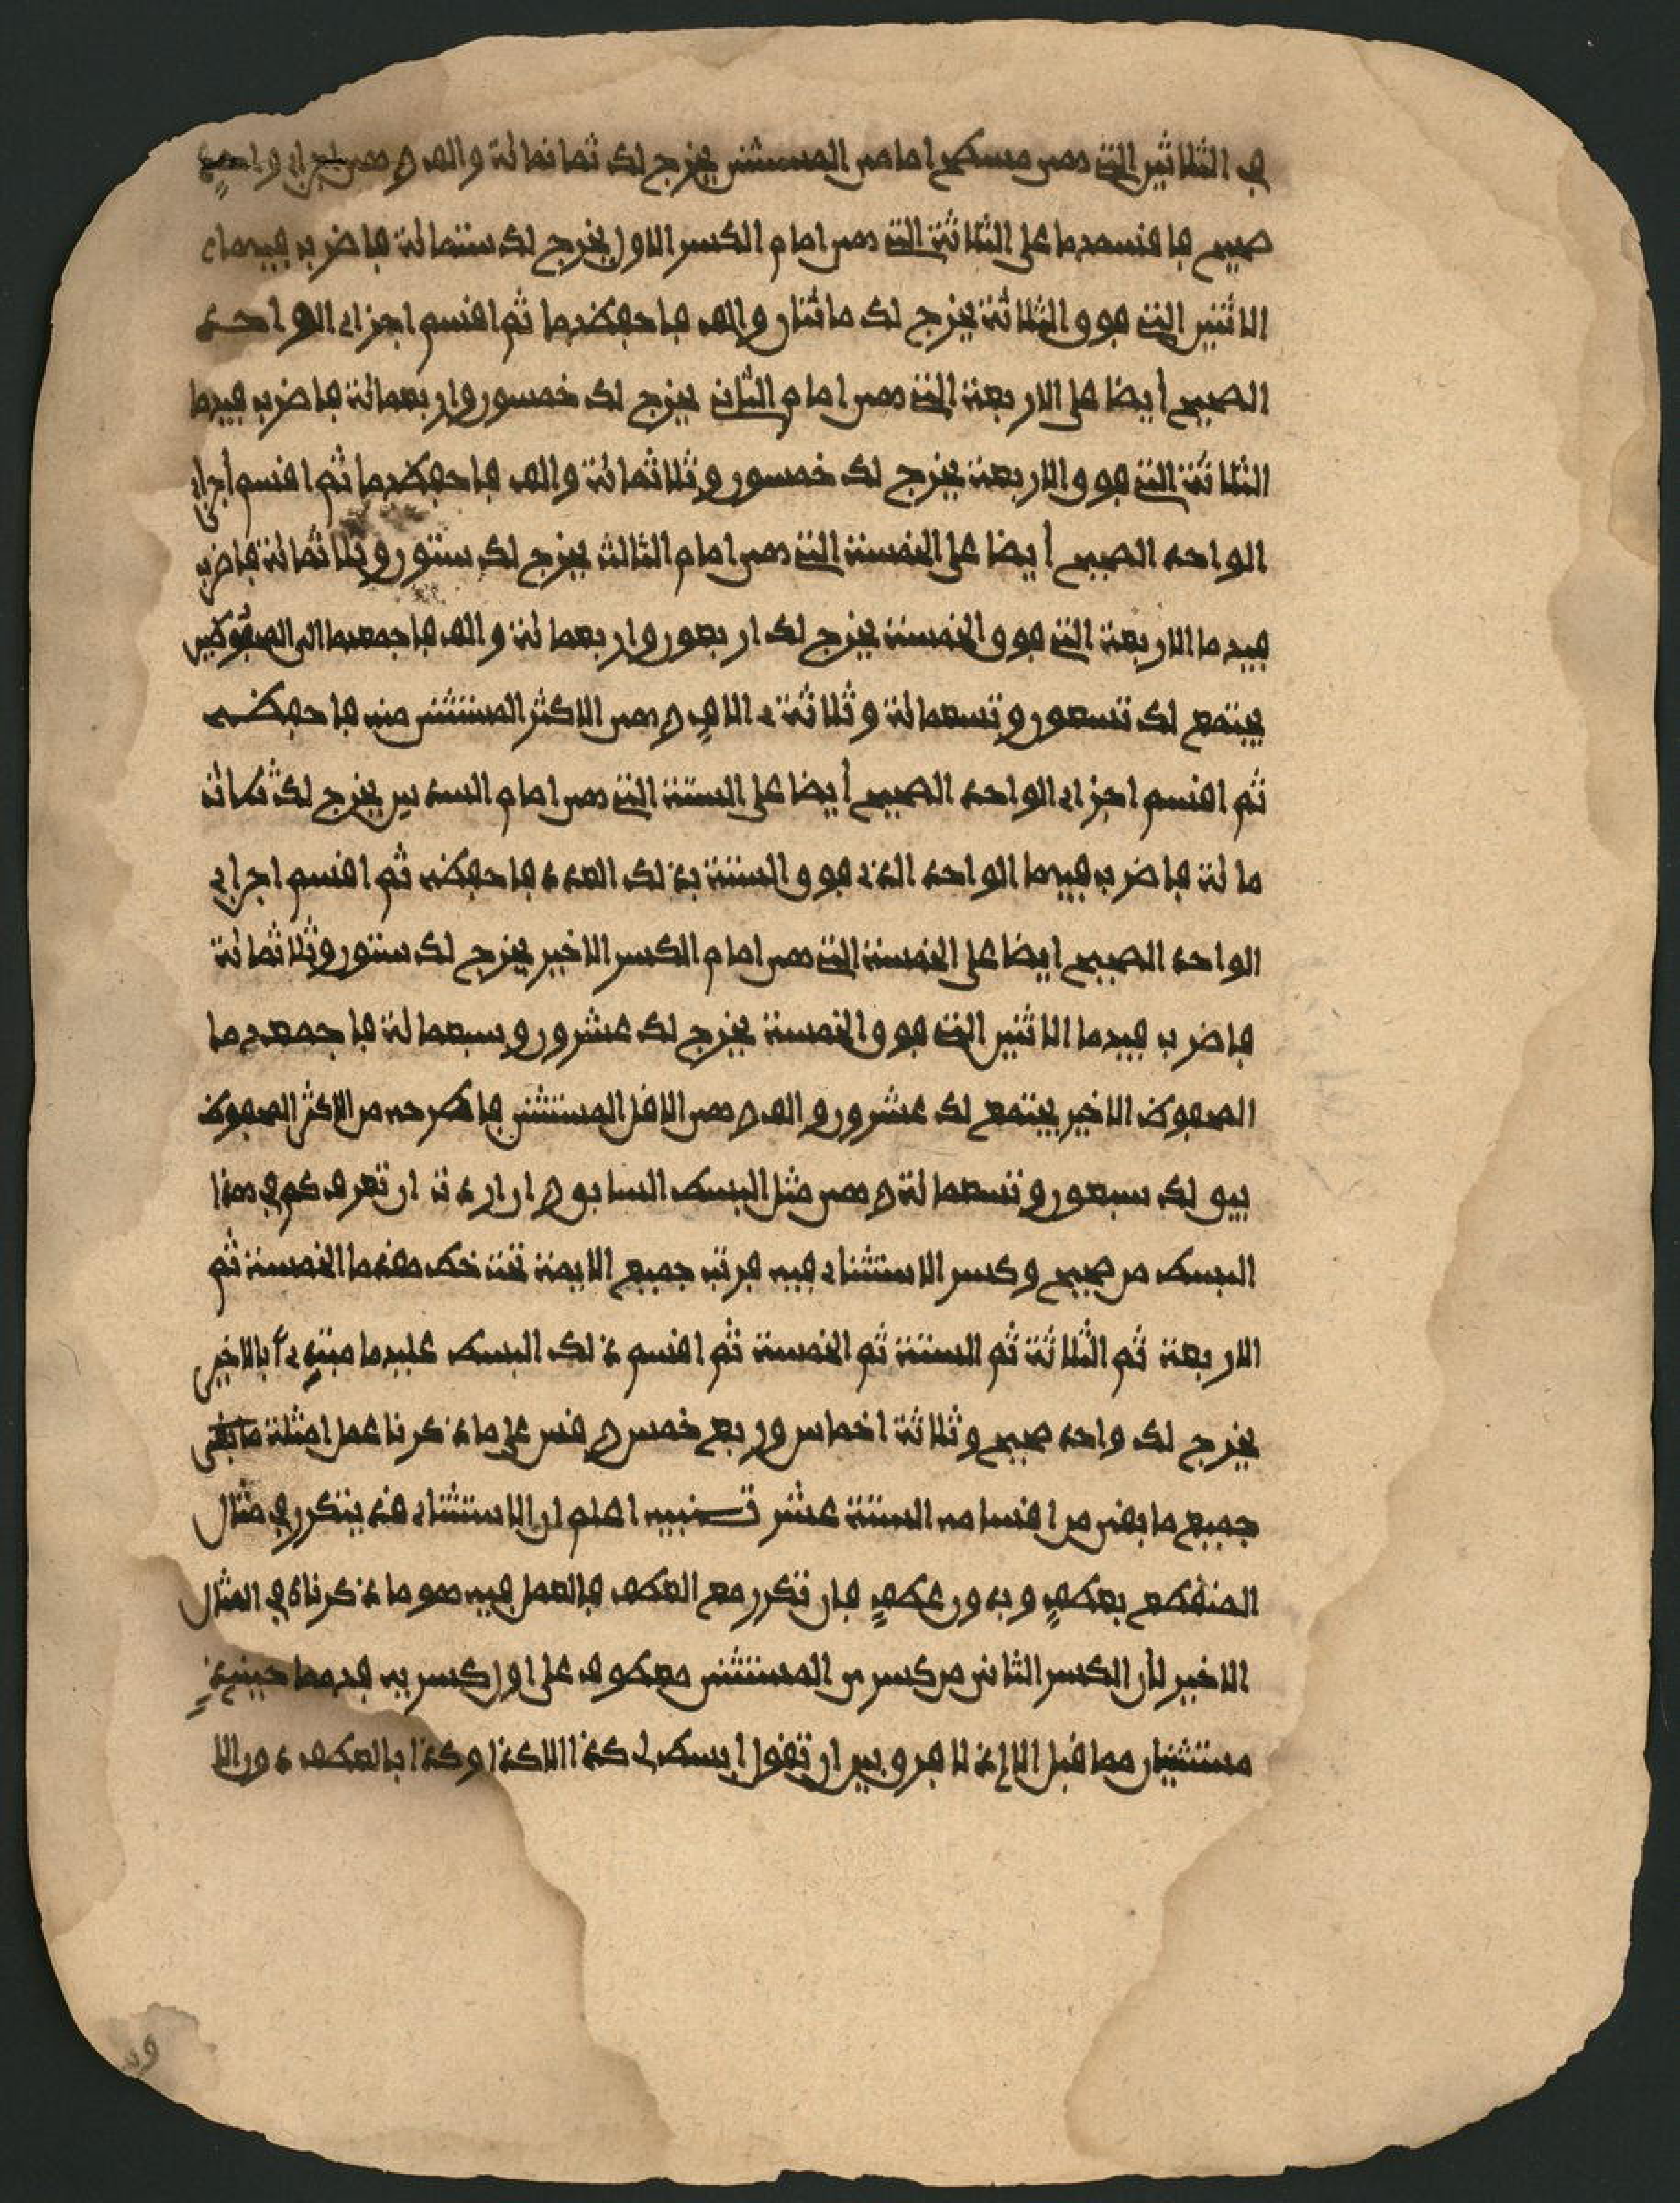 في الثلاثين التي هي مسطح امامي المستثنى يخرج لك ثمانمائة والف وهي اجزاء واحد
صحيح فاقسمها على الثلاثة التي هي امام الكسر الاول يخرج لك ستمائة فاضرب فيها
الاثنين التي فوق الثلاثة يخرج لك مائتان والف فاحفظها ثم اقسم اجزاء الواحد
الصحيح أيضا على الاربعة التي هي امام الثاني يخرج لك خمسون واربعمائة فاضرب فيها
الثلاثة التي فوق الاربعة يخرج لك خمسون وثلاثمائة والف فاحفظها ثم اقسم أجزاء
الواحد الصحيح أيضا على الخمسة التي هي امام الثالث يخرج لك ستون وثلاثمائة فاضرب
فيها الاربعة التي فوق الخمسة يخرج لك اربعون واربعمائة والف فاجمعها الى المحفوظين
يجتمع لك تسعون وتسعمائة وثلاثة ءالاف وهي الاكثر المستثنى منه فاحفظه
ثم اقسم اجزاء الواحد الصحيح أيضا على الستة التي هي امام السدس يخرج لك ثلاث
مائة فاضرب فيها الواحد الذي فوق الستة بذلك العدد فاحفظه ثم اقسم اجزاء
الواحد الصحيح ايضا على الخمسة التي هي امام الكسر الاخير يخرج لك ستون وثلاثمائة
فاضرب فيها الاثنين التي فوق الخمسة يخرج لك عشرون وسبعمائة فاجمعها
المحفوظ الاخير يجتمع لك عشرون والف وهي الاقل المستثنى فاطرحه من الاكثر المحفوظ
يبق لك سبعون وتسعمائة وهي مثل البسط السابق وان اردت ان تعرف كم في هذا
البسط من صحيح وكسر الاستثناء فيه فرتب جميع الايمة تحت خط مقدما الخمسة ثم
الاربعة ثم الثلاثة ثم الستة ثم الخمسة ثم اقسم ذلك البسط عليها مبتدءأ بالاخير
يخرج لك واحد صحيح وثلاثة اخماس وربع خمس وقس على ما ذكرنا عمل امثلة ما بقى
جميع ما بقي من اقسامه الستة عشر تنبيه اعلم ان الاستثناء قد يتكرر في مثال
المنقطع بعطفٍ وبدون عطفٍ فان تكرر مع العطف فالعمل فيه هو ما ذكرناه في المثال
الاخير لأن الكسر الثاني من كسري المستثنى معطوف على اول كسريه فهما حينئذٍ
مستثنيان مما قبل الا اذ لا فرق بين ان تقول ابسط لي كذا الا كذا وكذا بالعطف دون الا